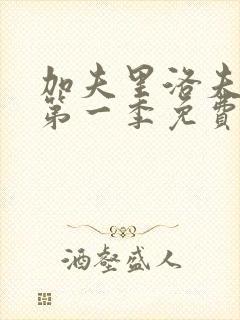 加夫里洛夫
第一季免費
酒壑盛人